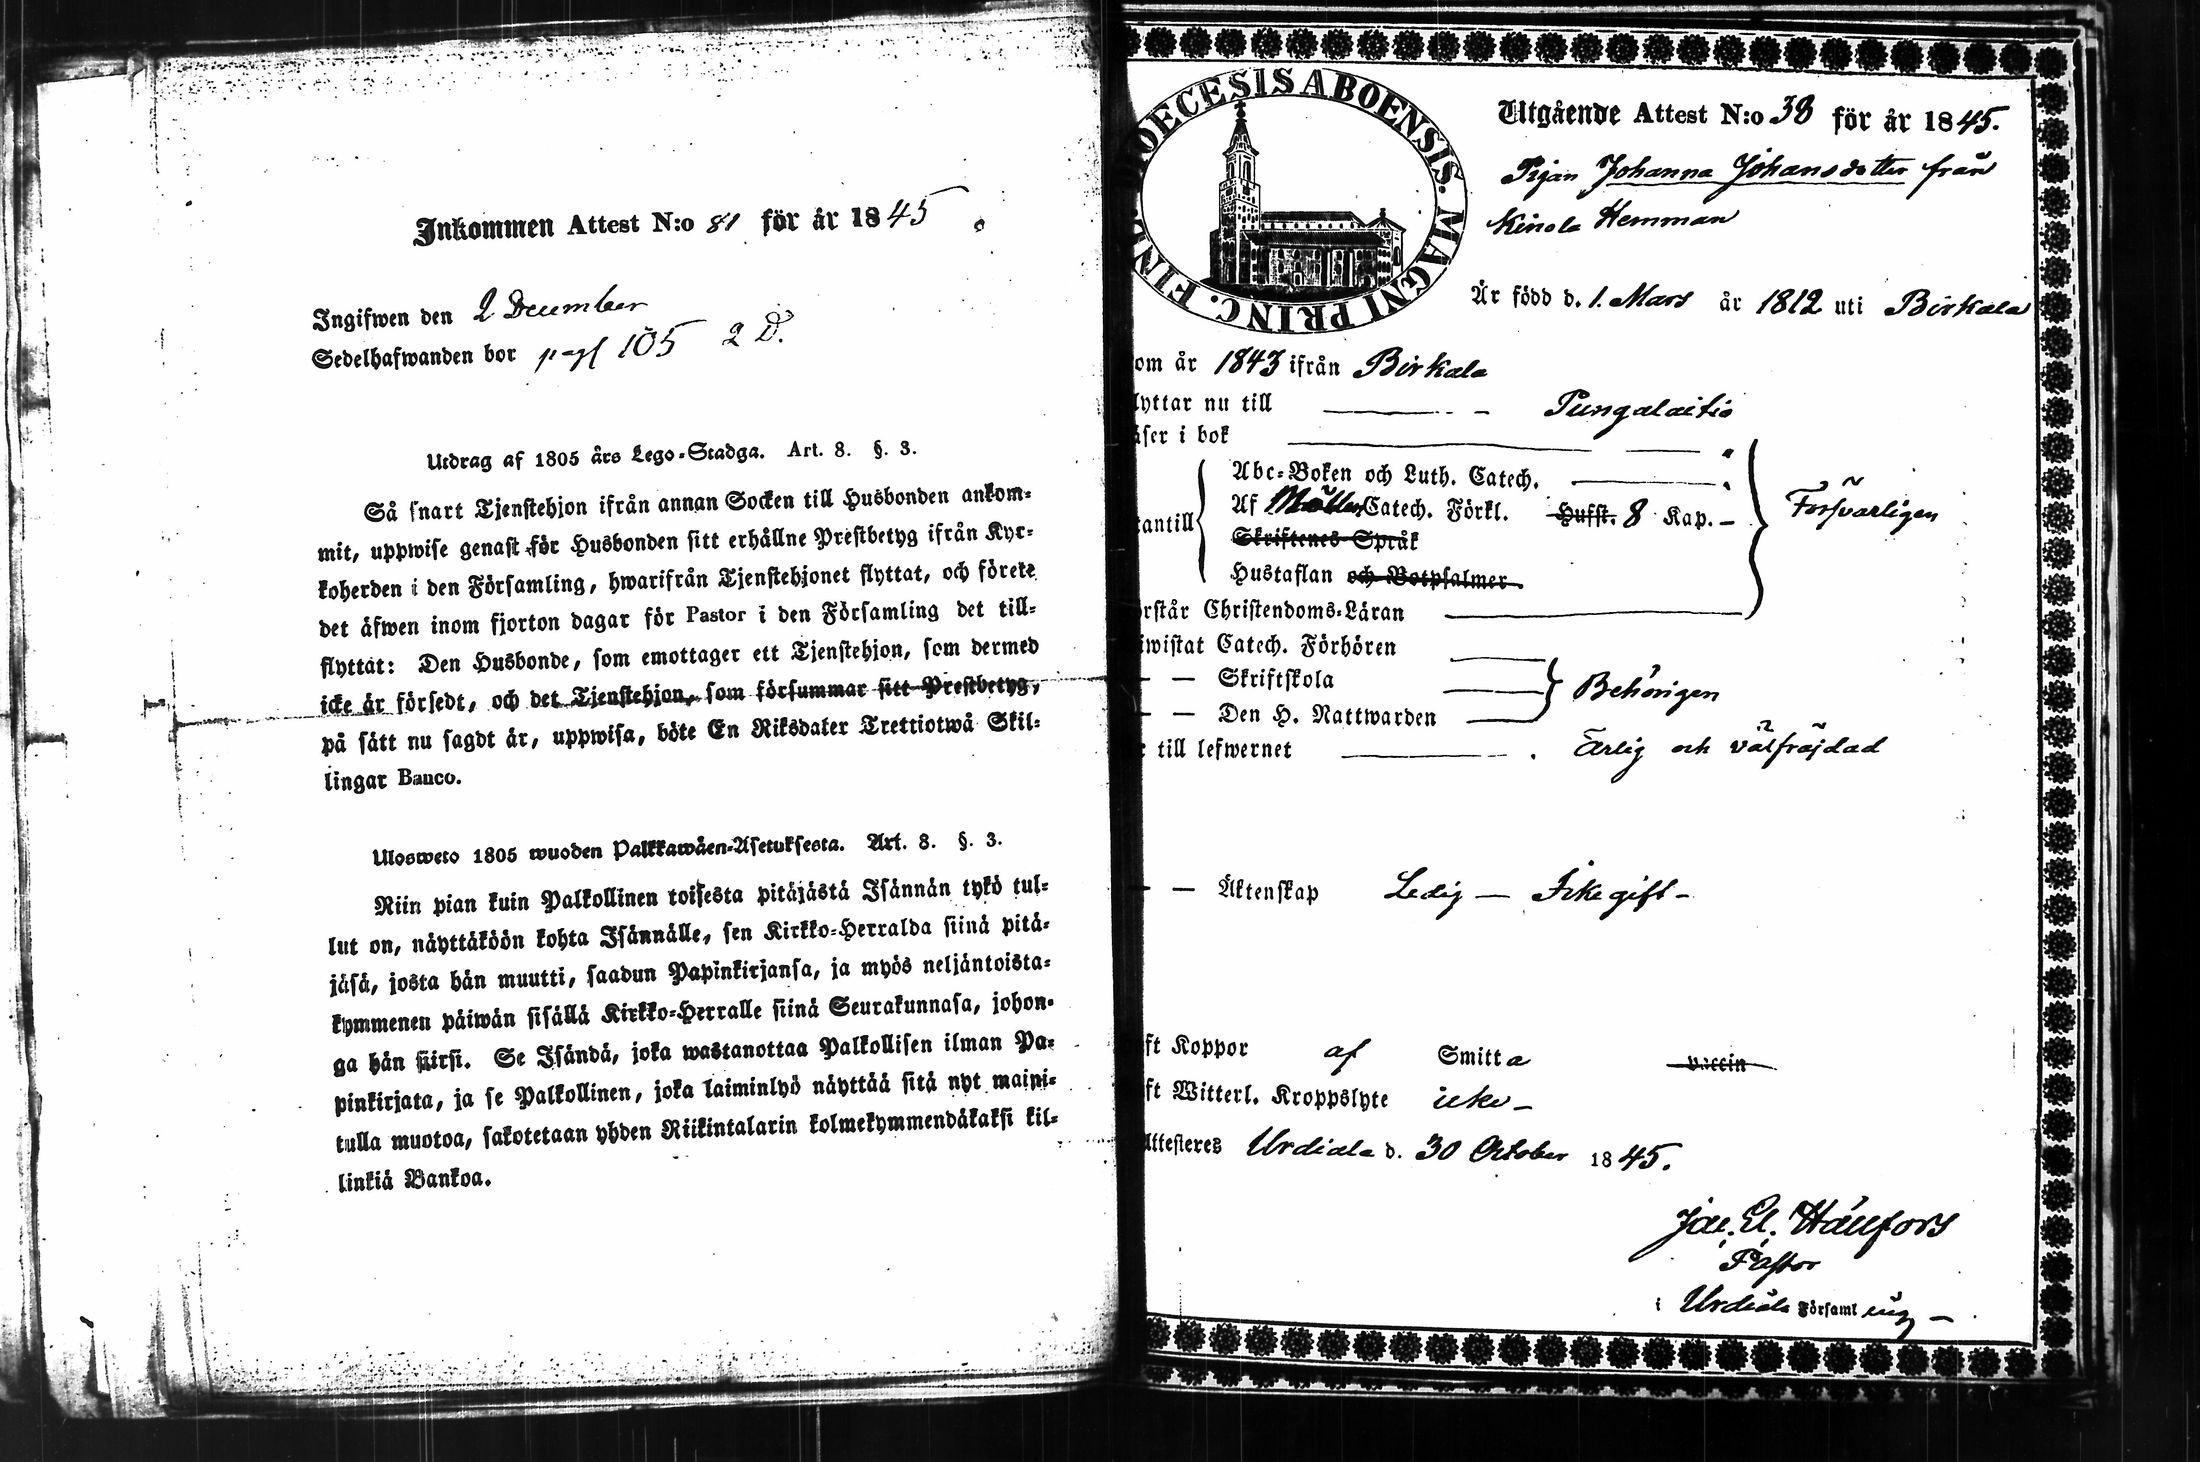 Inkommen Attest N:o 81 för år 1845.
Ingifwen den 2 December
Sedelhafwanden bor pag 105 2 D.
Utdrag af 1805 års Lego-Stadga. Art. 8. §. 3.
Så snart Tjenstehjon ifrån annan Socken till Husbonden ankom-
mit, uppwise genast för Husbonden sitt erhållne Prestbetyg ifrån Kyr-
koherden i den Församling, hwarifrån Tjenstehjonet flyttat, och förete
det äfwen inom fjorton dagar för Pastor i den Församling det till-
flyttat: Den Husbonde, som emottager ett Tjenstehjon, som dermed
icke är försedt, och det Tjenstehjon, som försummar sitt Prestbetyg,
på sätt nu sagdt är, uppwisa, böte En Riksdaler Trettiotwå Skil-
lingar Banco.
Ulosweto 1805 wuoden Palkkawäen-Asetuksesta. Art. 8. §. 3.
Niin pian kuin Palkollinen toisesta pitäjästä Isännän tykö tul-
lut on, näyttäköön kohta Isännälle, sen Kirkko-Herralda siinä pitä-
jäsä, josta hän muutti, saadun Papinkirjansa, ja myös neljäntoista-
kymmenen päiwän sisällä Kirkko-Herralle siinä Seurakunnasa, johon-
ga hän siirsi. Se Isändä, joka wastanottaa Palkollisen ilman Pa-
pinkirjata, ja se Palkollinen, joka laiminlyö näyttää sitä nyt maini-
tulla muotoa, sakotetaan yhden Riikintalarin kolmekymmendäkaksi kil-
linkiä Bankoa.
DIOECESIS ABOENSIS. MAGNI PRINC. FINL.
Utgående Attest N:o 38 för år 1845.
Pigan Johanna Johansdotter från
Kinala Hemman
Är född d. 1. Mars år 1812 uti Birkala
om år 1843 ifrån Birkala
lyttar nu till Pungalaitio
äser i bok
Abc-Boken och Luth. Catech.
Af Möllers Catech. Förkl. Hufst. 8 Kap. –
tantill
Försvarligen
Skriftenes Språk
Hustaflan och Botpsalmer.
örstår Christendoms-Läran
iwistat Catech. Förhören
— — Skriftskola
Behörigen
— — Den H. Nattwarden
r till lefwernet Ärlig och välfräjdad
— — Äktenskap Ledig — Icke gift –
ft Koppor af Smitta vaccin
ft Witterl. Kroppslyte icke –
Attesteres Urdiala d. 30 October 1845.
Jac. El. Hällfors
Pastor
i Urdiala Församling –